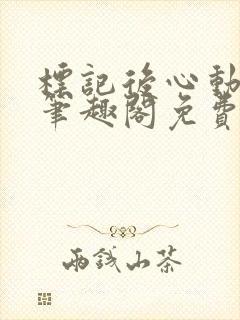 標記後心動
筆趣閣免費
兩錢山茶